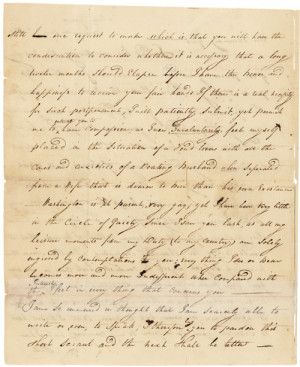 one request to make which is that you will have the
condescention to consider whether it is necessary that a long
twelve months should elapse before I have the honor and
happiness to receive your fair hand If there is a real necessity
for such postponement, I will patiently submit, yet permit
me to have compassion as I now feel myself
placed in the Situation of a fond lover with all the
cares and anxieties of a Doating Husband when Separated
from a Wife that is dearer to him than his own existence
Washington is at present very gay; yet I have been very little
in the Circle of Gaiety Since I saw you last, as all my
leisure moments from my duty (to my country) are Solely
by contemplations to you; every thing I see or hear
becomes more and more Indifferent when compared with
that in every thing that concerns you
I am So in thought that I am Scarcely able to
write or even to Speak, I therefore you to pardon this
Short and the next Shall be better